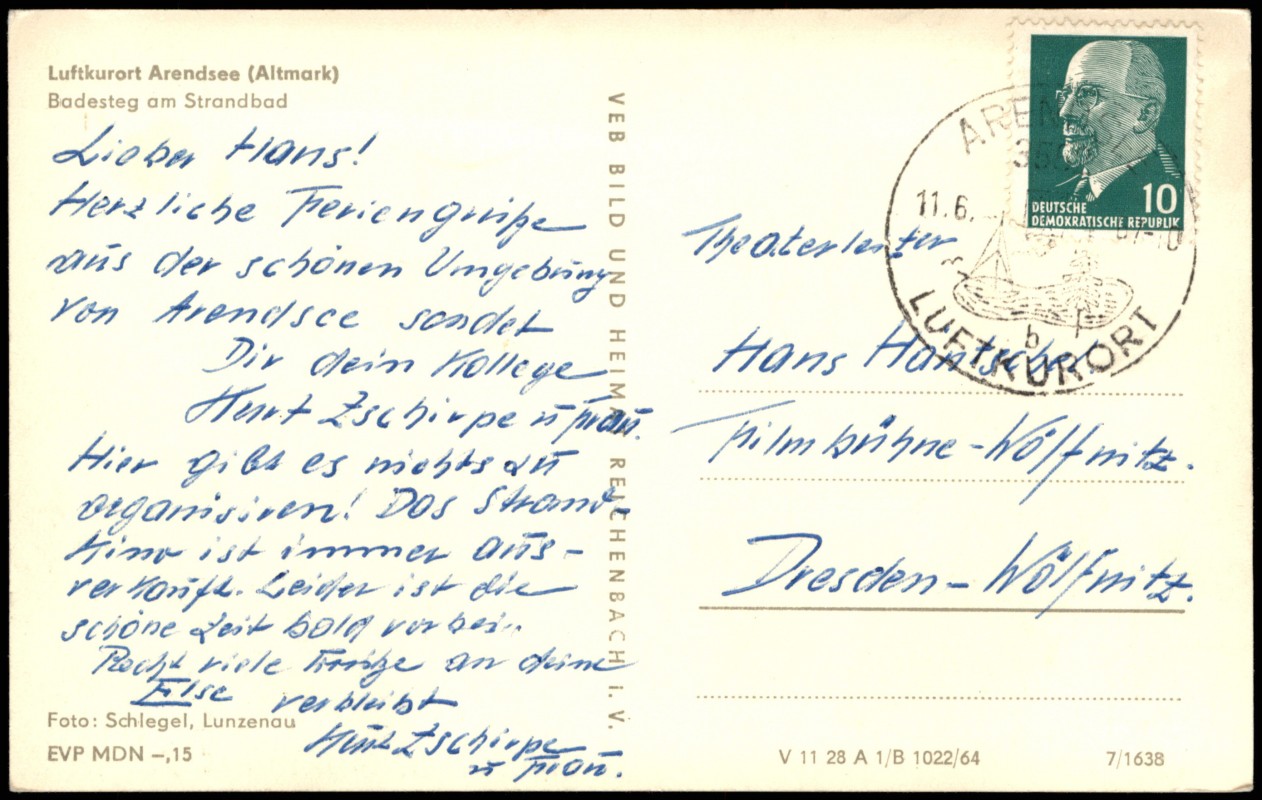 Luftkurort Arendsee (Altmark)
Badesteg am Strandbad
Lieber Hans!
Herzliche Feriengrüße
aus der schönen Umgebung
von Arendsee sendet
Dir dein Kollege
Kurt Zschirpe u Frau.
Hier gibt es nichts zu
organisiren! Das Strand-
Kino ist immer aus-
verkauft. Leider ist die
schöne Zeit bald vorbei.
Recht viele Grüße an deine
Else verbleibt
Kurt Zschirpe
u Frau.
Foto: Schlegel, Lunzenau
EVP MDN –,15
VEB BILD UND HEIMAT REICHENBACH i. V.
DEUTSCHE
DEMOKRATISCHE REPUBLIK
10
11.6.
b
LUFTKURORT
Theaterleiter
Hans Hantsche
Filmbühne-Wölfnitz.
Dresden-Wölfnitz.
V 11 28 A 1/B 1022/64
7/1638